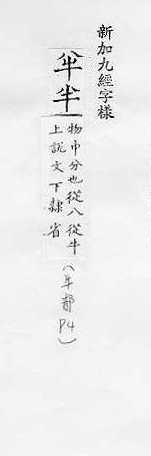 新加九經字樣
𠦒半
物中分也從八從牛
上說文下隸省
(牛部
P4)